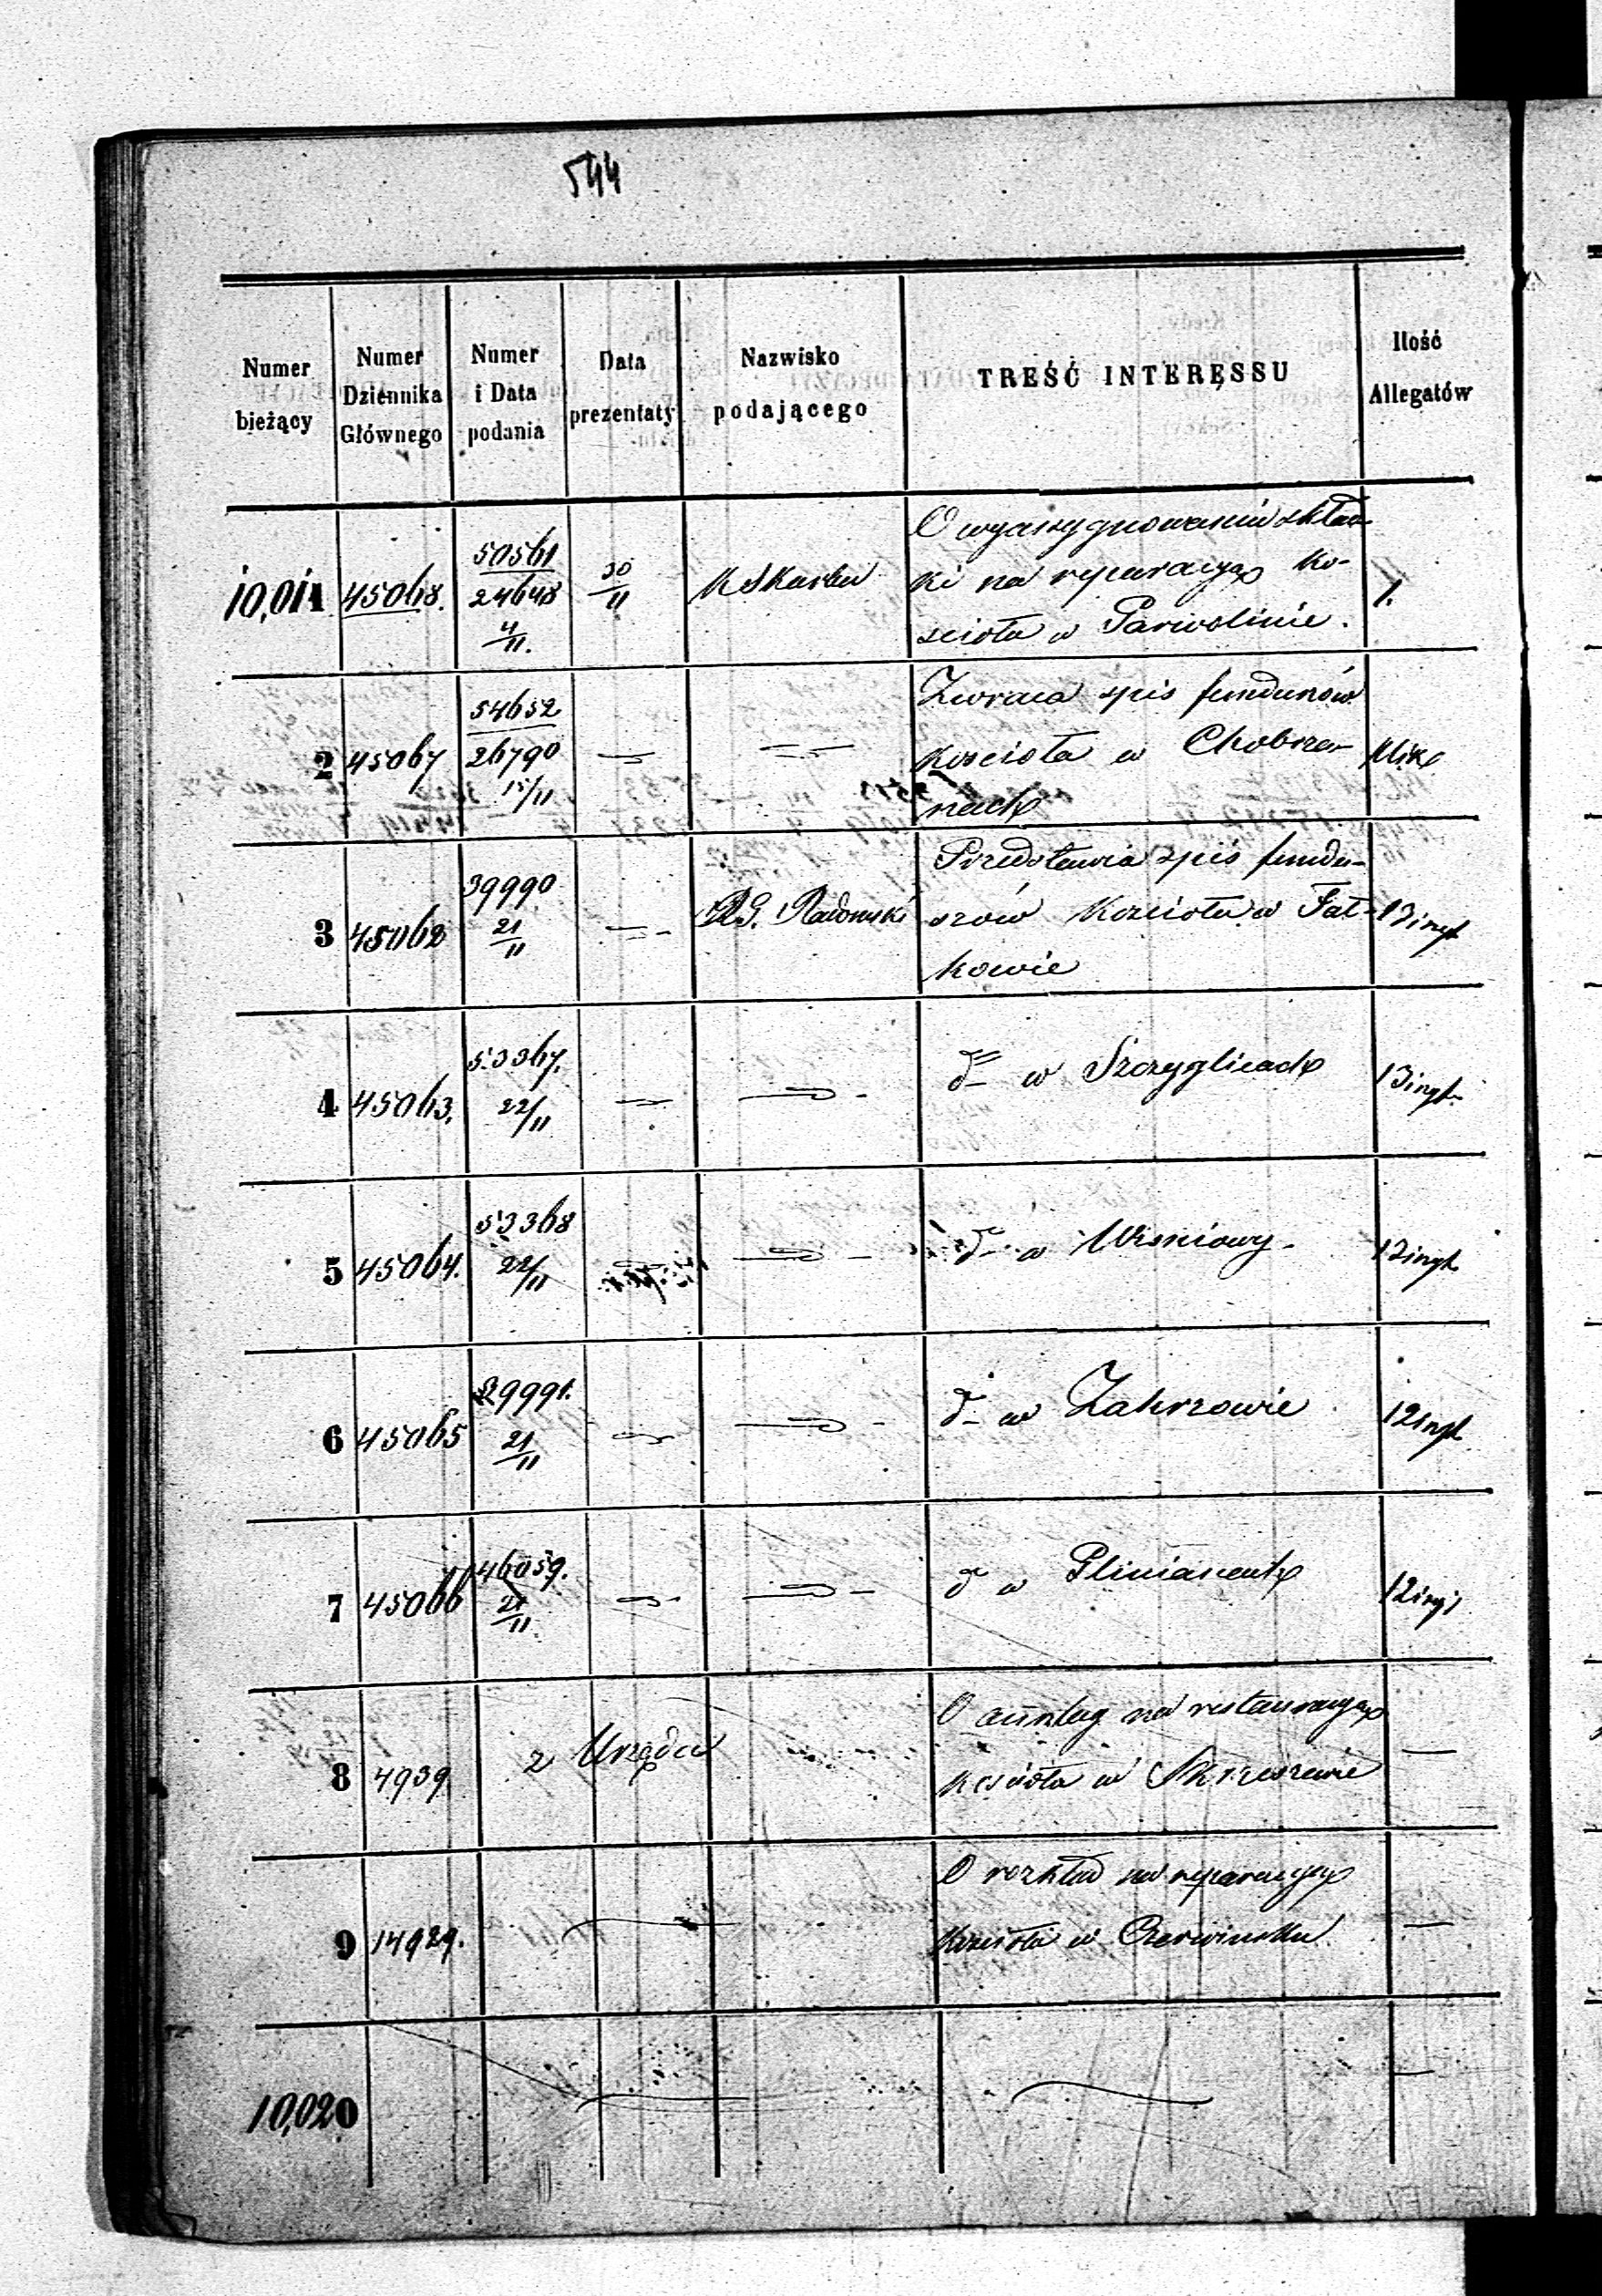 544
Numer bieżący
Numer Dziennika Głównego
Numer i Data podania
Data prezentaty
Nazwisko podającego
TREŚĆ INTERESSU
Ilość Allegatów
10,011 45068. 50561 30/11 K Skarbu O wyassygnowaniu skład-
24648 ki na reparacyą Ko-
4/11. scioła w Parwolinie.
2 45067 54652 Zwraca spis funduszów
26790 Kościoła w Chobrza-
15/11 nach
3 45062 39990 R.G. Radomski Przedstawia spis fundu-
21/11 szów Kościoła w Fał-
kowie
4 45063. 53367. 22/11 d-o w Szczyglicach
5 45064. 53368 22/11 d-o w Wisniowy
6 45065 39991. 21/11 d-o w Zakrzowie
7 45066 46059. 21/11 d-o w
8 4939 z Urzędu O anszlag na restauracyą
kościoła w
9 14929. O rozkład na reparacyą
Kościoła w Czerwinsku
10,020